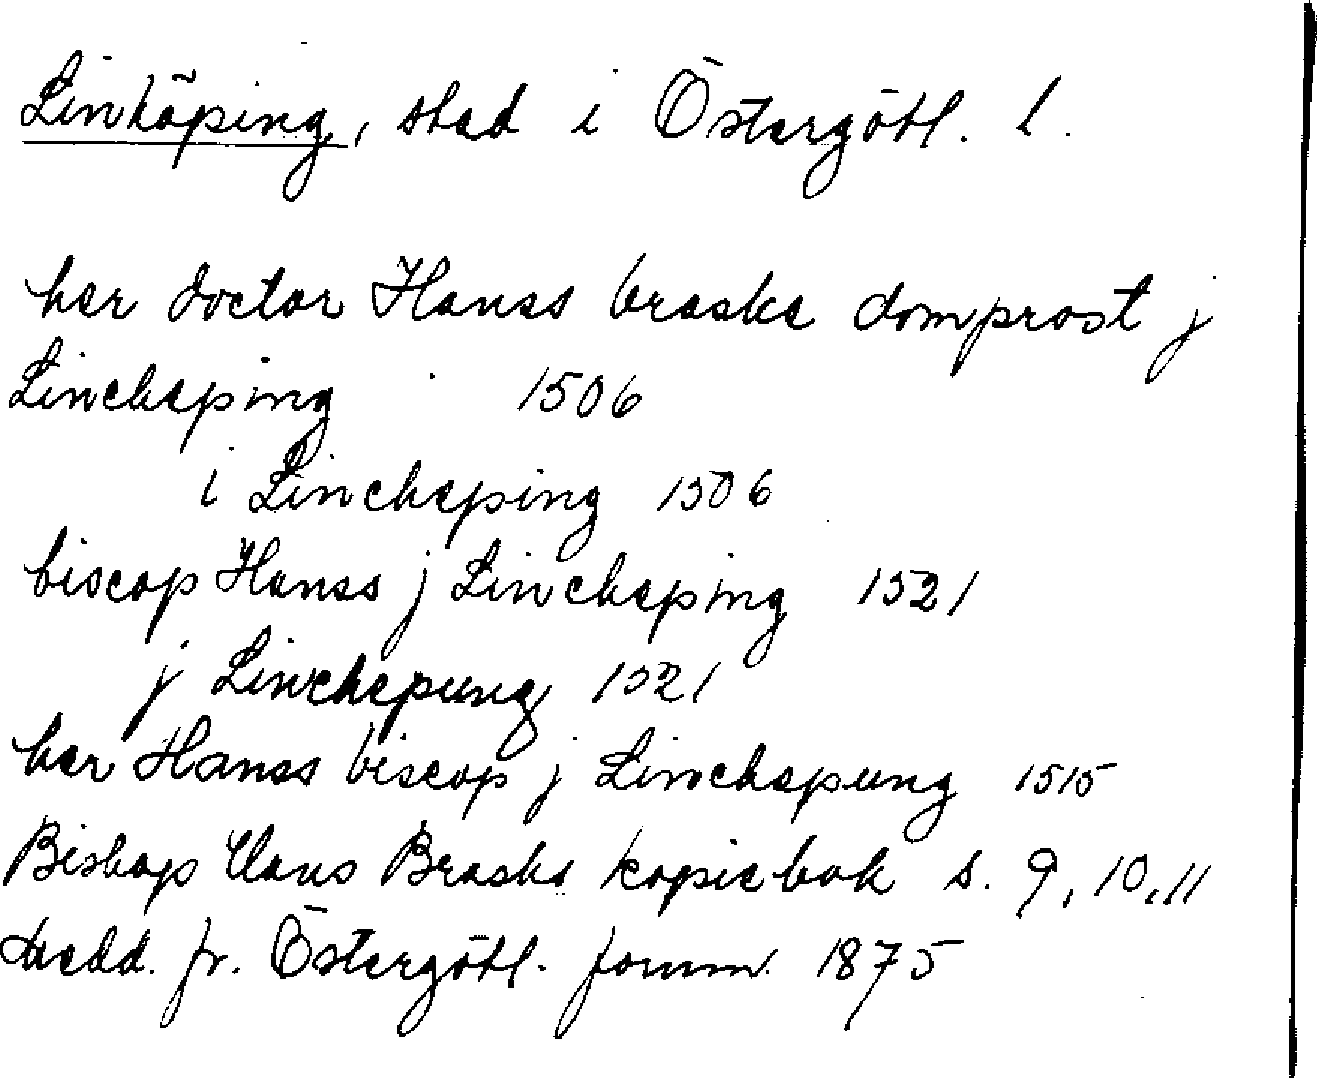 Linköping, stad i Östergötl. l.
her doctor Hanss braske domprost j
Lincheping 1506
i Lincheping 1506
biscop Hanss j Lincheping 1521
j Linchepung 1521
her Hanss biscop j Linchepung 1515
Biskop Hans Brasks kopiebok s. 9, 10, 11
Medd. fr. Östergötl. fornm. 1875